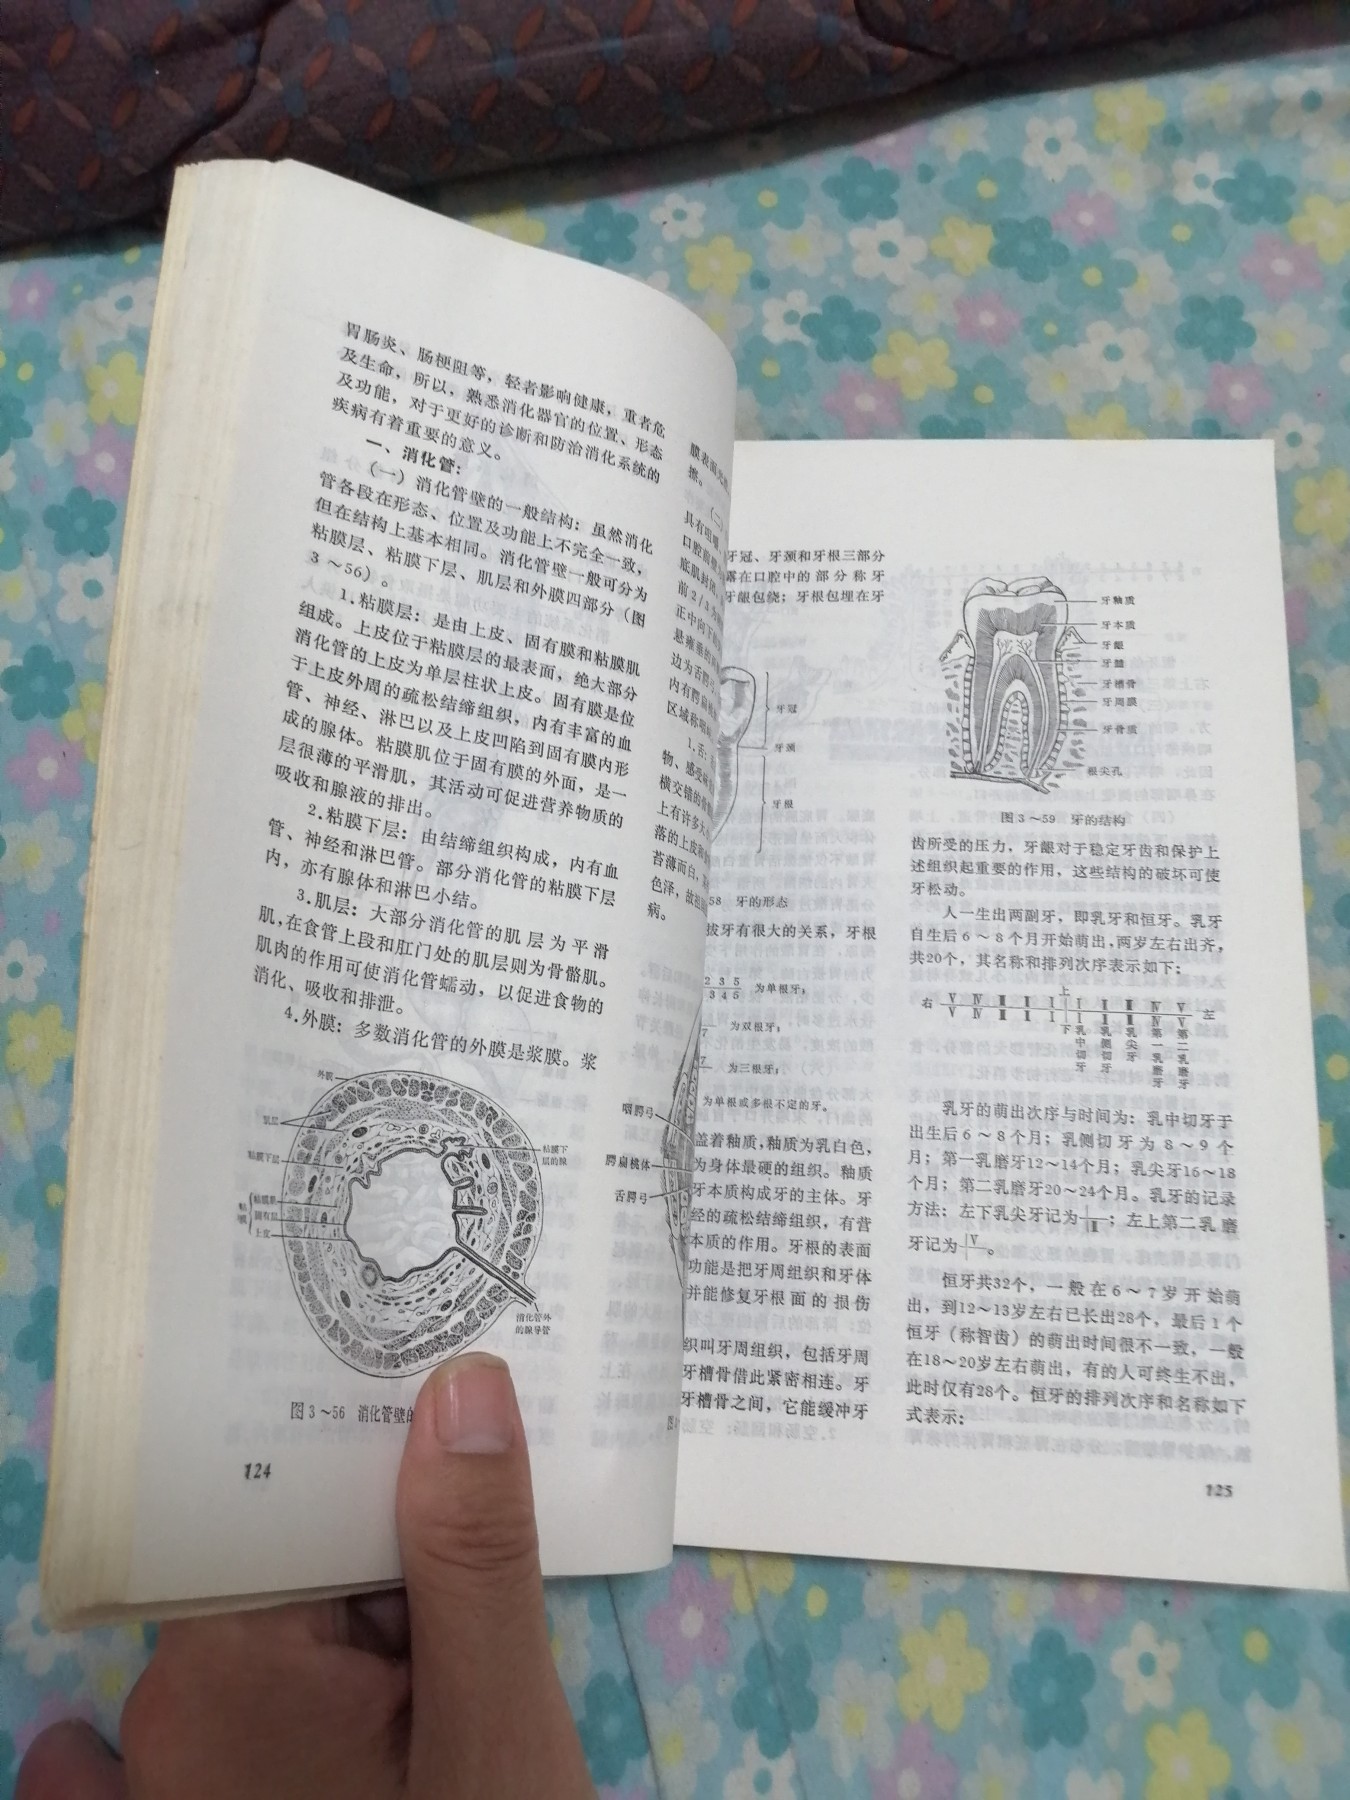 胃肠炎、肠梗阻等，轻者影响健康，重者危
及生命，所以，熟悉消化器官的位置、形态
及功能，对于更好的诊断和防治消化系统的
疾病有着重要的意义。
一、消化管：
（一）消化管壁的一般结构：虽然消化
管各段在形态、位置及功能上不完全一致，
但在结构上基本相同。消化管壁一般可分为
粘膜层、粘膜下层、肌层和外膜四部分（图
3～56）。
1.粘膜层：是由上皮、固有膜和粘膜肌
组成。上皮位于粘膜层的最表面，绝大部分
消化管的上皮为单层柱状上皮。固有膜是位
于上皮外周的疏松结缔组织，内有丰富的血
管、神经、淋巴以及上皮凹陷到固有膜内形
成的腺体。粘膜肌位于固有膜的外面，是一
层很薄的平滑肌，其活动可促进营养物质的
吸收和腺液的排出。
2.粘膜下层：由结缔组织构成，内有血
管、神经和淋巴管。部分消化管的粘膜下层
内，亦有腺体和淋巴小结。
3.肌层：大部分消化管的肌层为平滑
肌，在食管上段和肛门处的肌层则为骨骼肌。
肌肉的作用可使消化管蠕动，以促进食物的
消化、吸收和排泄。
4.外膜：多数消化管的外膜是浆膜。浆
外膜
肌层
粘膜下层
粘膜
粘膜肌
固有层
上皮
粘膜下
层的腺
消化管外
的腺导管
图3～56 消化管壁的
124
膜表面光
擦。
（二）
具有咀嚼
口腔前壁
底肌封闭
前2/3为
正中向下
悬雍垂的
边为舌腭
内有腭扁
区域称咽
1.舌：
物、感受味
横交错的骨
上有许多大
落的上皮和
苔薄而白，
色泽，故
病。
咽腭弓
腭扁桃体
舌腭弓
牙冠、牙颈和牙根三部分
露在口腔中的部分称牙
牙龈包绕；牙根包埋在牙
牙冠
牙颈
牙根
58 牙的形态
拔牙有很大的关系，牙根
2 3 5
3 4 5
为单根牙；
7
为双根牙；
7
为三根牙；
为单根或多根不定的牙。
盖着釉质，釉质为乳白色，
为身体最硬的组织。釉质
牙本质构成牙的主体。牙
经的疏松结缔组织，有营
本质的作用。牙根的表面
功能是把牙周组织和牙体
并能修复牙根面的损伤
织叫牙周组织，包括牙周
牙槽骨借此紧密相连。牙
牙槽骨之间，它能缓冲牙
牙釉质
牙本质
牙龈
牙髓
牙槽骨
牙周膜
牙骨质
根尖孔
图3～59 牙的结构
齿所受的压力，牙龈对于稳定牙齿和保护上
述组织起重要的作用，这些结构的破坏可使
牙松动。
人一生出两副牙，即乳牙和恒牙。乳牙
自生后6～8个月开始萌出，两岁左右出齐，
共20个，其名称和排列次序表示如下：
上
右 Ⅴ Ⅳ Ⅲ Ⅱ Ⅰ Ⅰ Ⅱ Ⅲ Ⅳ Ⅴ 左
Ⅴ Ⅳ Ⅲ Ⅱ Ⅰ Ⅰ Ⅱ Ⅲ Ⅳ Ⅴ
下
乳中切牙
乳侧切牙
乳尖牙
第一乳磨牙
第二乳磨牙
乳牙的萌出次序与时间为：乳中切牙于
出生后6～8个月；乳侧切牙为8～9个
月；第一乳磨牙12～14个月；乳尖牙16～18
个月；第二乳磨牙20～24个月。乳牙的记录
方法：左下乳尖牙记为Ⅲ；左上第二乳磨
牙记为Ⅴ。
恒牙共32个，一般在6～7岁开始萌
出，到12～13岁左右已长出28个，最后1个
恒牙（称智齿）的萌出时间很不一致，一般
在18～20岁左右萌出，有的人可终生不出，
此时仅有28个。恒牙的排列次序和名称如下
式表示：
125